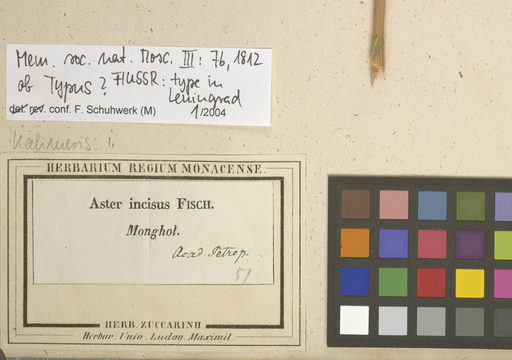 Mem. soc. nat. Mosc. III: 76, 1812
ob Typus? FlUSSR: type in
Leningrad
det. rev. conf. F. Schuhwerk (M) 1/2004
Kalimeris
HERBARIUM REGIUM MONACENSE.
Aster incisus FISCH.
Monghol.
Acad. Petrop.
51
HERB. ZUCCARINII
Herbar. Univ. Ludov. Maximil